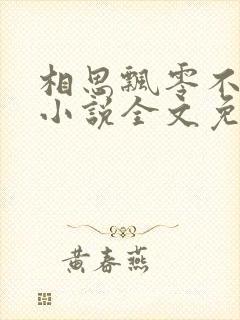 相思飘零不
小说全文免
黄春燕